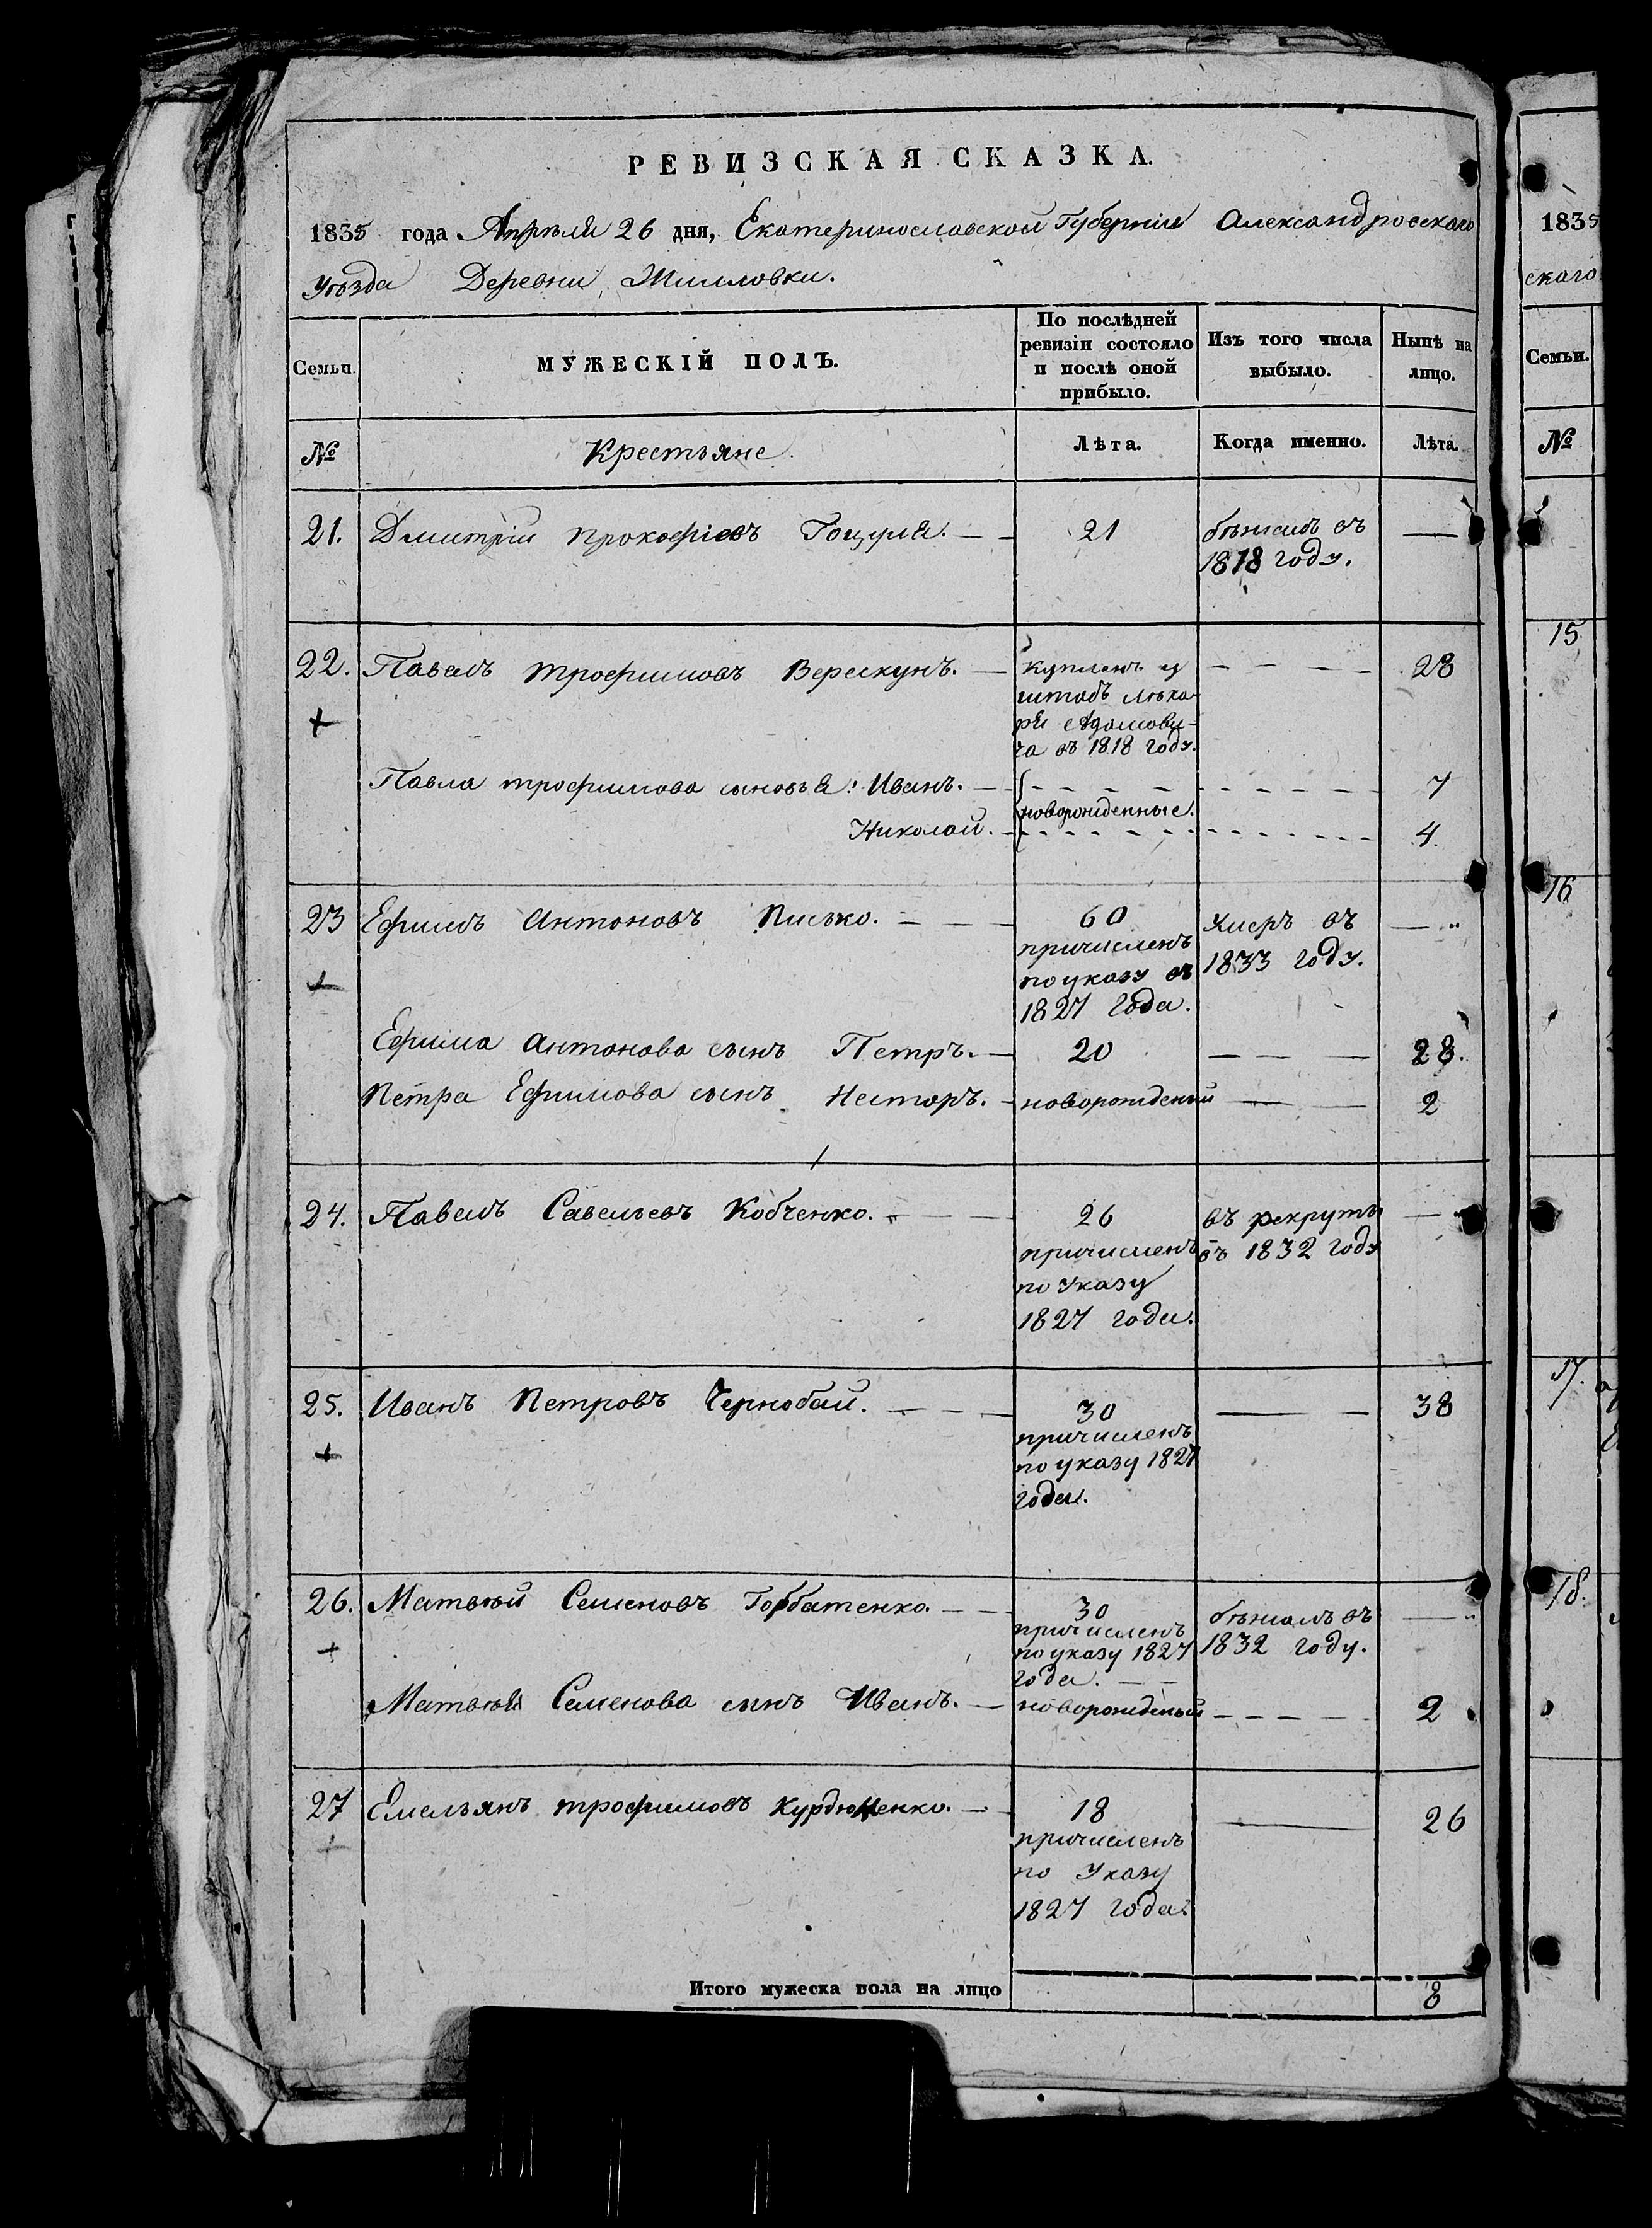 РЕВИЗСКАЯ СКАЗКА.
1835 года Апрѣля 26 дня, Екатеринославской Губерніи Александровскаго
уѣзда Деревни
Семьи. МУЖЕСКІЙ ПОЛЪ. По послѣдней ревизіи состояло и послѣ оной прибыло. Изъ того числа выбыло. Нынѣ на лицо.
№ Крестьяне. Лѣта. Когда именно. Лѣта.
21. Дмитрій Прокофіевъ Гоцуля. 21 бѣжалъ въ —
1818 году.
22. Павелъ Трофимовъ Верескунъ. — купленъ у — — — 28
+ штабъ лѣка-
ря Адамови-
ча въ 1818 году.
Павла Трофимова сыновья: Иванъ. — 7
новорожденные.
Николай. — 4.
23 Ефимъ Антоновъ Писько. — 60 умеръ въ —
+ причисленъ 1833 году.
по указу въ
1827 года.
Ефима Антонова сынъ Петръ. — 20 — — — 28.
Петра Ефимова сынъ Несторъ. — новорожденый — — 2
24. Павелъ Савельевъ Кобченко. — 26 въ рекруты —
причисленъ въ 1832 году
по Указу
1827 года.
25. Иванъ Петровъ Чернобай. — 30 — — 38
+ причисленъ
по указу 1827
года.
26. Матвѣй Семеновъ Горбатенко. — 30 бѣжалъ въ —
+ причисленъ 1832 году.
по указу 1827
года. — —
Матвѣя Семенова сынъ Иванъ. — новорожденый — — — 2
27 Емельянъ Трофимовъ — 18 — 26
+ причисленъ
по Указу
1827 года.
Итого мужеска пола на лицо 8
1835
скаго
Семьи.
№
15
16
17.
18.